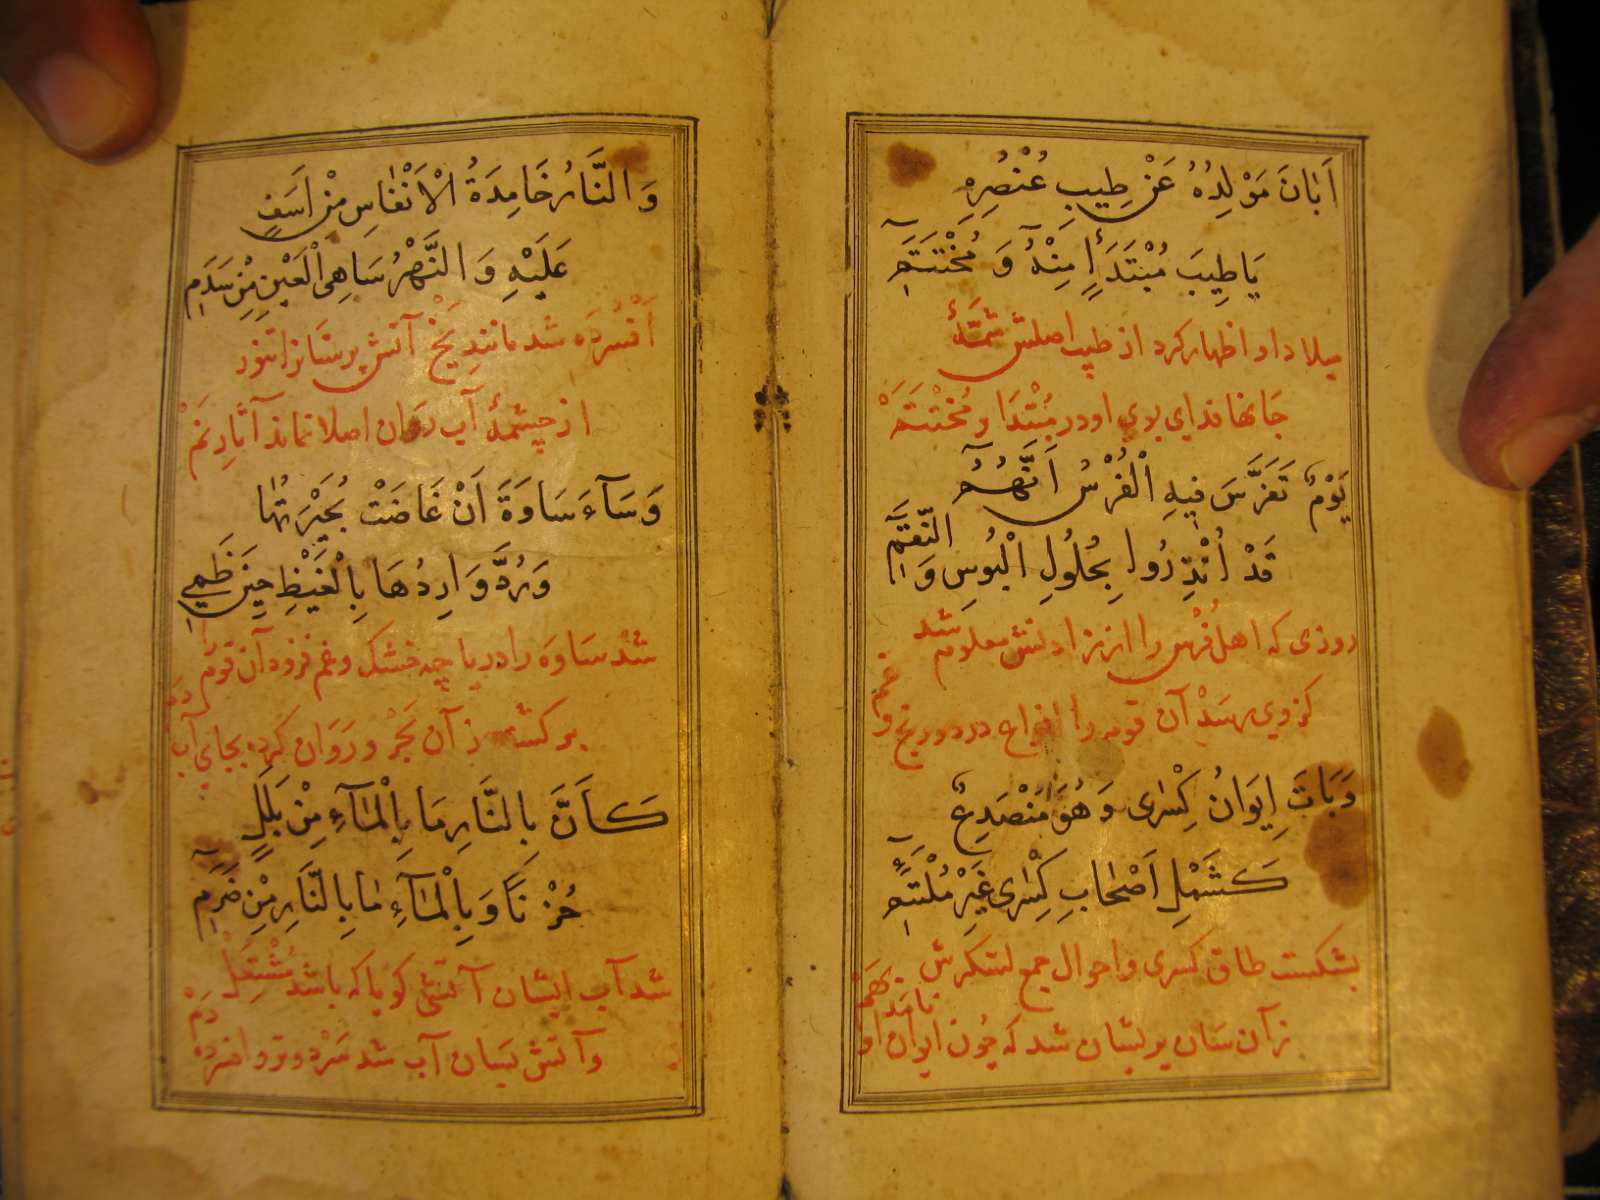 اَبَانَ مَوْلِدُهُ عَنْ طِيبِ عُنْصُرِهِ
يَا طِيبَ مُبْتَدَأٍ مِنْهُ وَ مُخْتَتَمِ
ميلاد او اظهار كرد از طيب اصلش شمّهٔ
جانها فداى بوى او در مُبْتَدَا و مُخْتَتَمْ
يَوْمٌ تَفَرَّسَ فِيهِ الْفُرْسُ اَنَّهُمُ
قَدْ اُنْذِرُوا بِحُلُولِ الْبُوسِ وَ النِّقَمِ
روزى كه اهل فُرْس را از دانش معلوم شد
كز وى رسد آن قوم را افواج درد و رنج و غم
وَبَاتَ اِيوَانُ كِسْرٰى وَ هُوَ مُنْصَدِعٌ
كَشَمْلِ اَصْحَابِ كِسْرٰى غَيْرَ مُلْتَئِمِ
بشكست طاق كسرى و احوال جمع لشكرش
زآن سان پريشان شد كه چون ايوان او نامد بَهَمْ
وَ النَّارُ خَامِدَةُ الْاَنْفَاسِ مِنْ اَسَفٍ
عَلَيْهِ وَ النَّهْرُ سَاهِى الْعَيْنِ مِنْ سَدَمِ
اَفْسُرْدَه شد مانند يَخْ آتش پرستانرا تنور
از چشمهٔ آب روان اصلا نماند آثار نَمْ
وَسَآءَ سَاوَةَ اَنْ غَاضَتْ بُحَيْرَتُهَا
وَرُدَّ وَارِدُهَا بِالْغَيْظِ حِينَ ظَمِى
شد ساوه را درياچه خشك و غم فزود آن قوم را
بركشت زآن بَحْر و رَوَان كرده بجاى آب دم
كَاَنَّ بِالنَّارِ مَا بِالْمَآءِ مِنْ بَلَلٍ
حُزْنًا وَ بِالْمَآءِ مَا بِالنَّارِ مِنْ ضَرَمِ
شد آب ايشان آتشى كويا كه باشد مُشْتَعِلْ
وآتش بسان آب شد سَرْد و تر و افسرده دَمْ